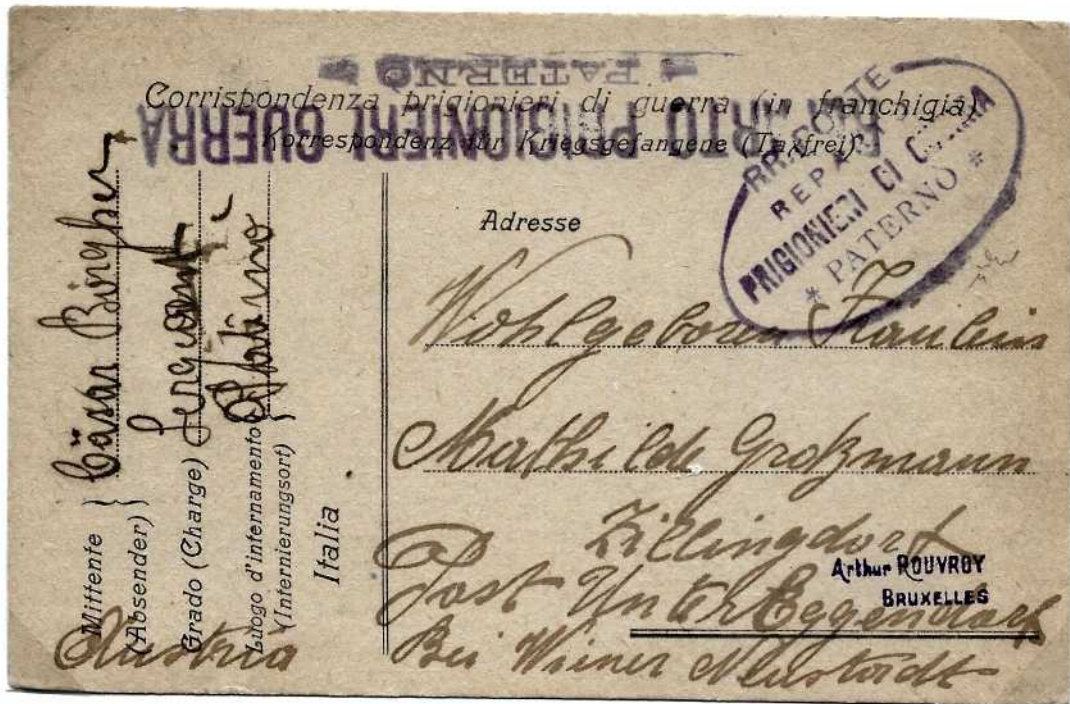 PATERNO
Corrispondenza prigionieri di guerra (in franchigia)
Korrespondenz für Kriegsgefangene (Taxfrei)
REPARTO PRIGIONIERI GUERRA
REPARTO
PRIGIONIERI DI GUERRA
* PATERNO *
Mittente
(Absender)
Cäsar
Grado (Charge)
Luogo d'internamento
(Internierungsort)
Paterno
Italia
Adresse
Wohlgeboren Fraulein
Mathilde Großmann
Zillingdorf
Post Unter Eggendorf
Bei Wiener Neustadt
Austria
Arthur ROUVROY
BRUXELLES